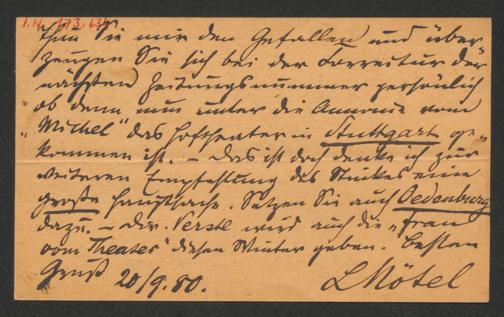 I.N. 173.63
thun Sie mir den Gefallen und über
zeugen Sie sich bei der Correktur der
nächsten Zeitungsnummer persönlich
ob denn nun unter die Annonce vom
„Michel" das Hoftheater in Stuttgart ge-
kommen ist. – Das ist doch denke ich zur
weiteren Empfehlung des Stückes eine
große Hauptsache. Setzen Sie auch Oedenburg
dazu. – Der wird auch die „Frau
vom Theater" diesen Winter geben. Besten
Gruß 20/9. 80. LMötel